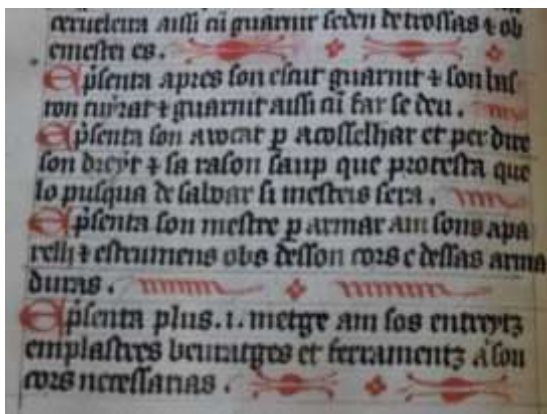 cerueleira aissi cū guarnit seden de trossas ⁊ ob
emestri es.
Ep̄senta apres son escut guarnit ⁊ son bas
ton cuyrat ⁊ guarnit aissi cū far se deu.
Ep̄senta son avocat p̱ acosselhar et per dire
son dreyt ⁊ sa rason saup que protesta que
lo pusqua de salvar si mestris sera.
Ep̄senta son mestre p̱ armar am sons apa
relh ⁊ estrumens obs desson cors e dessas arma
duras.
Ep̄senta plus .i. metge am sos entreytz
emplastres beuratges et ferramentz a son
cors necessarias.